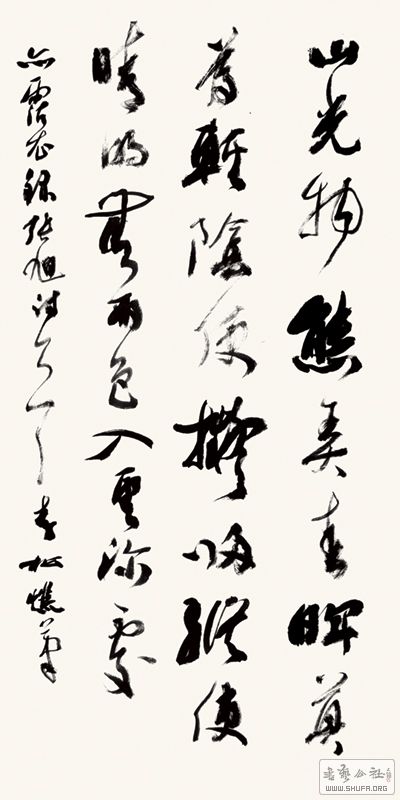 山光物態弄春暉莫
為輕陰便擬歸縱使
晴明無雨色入雲深處
亦霑衣録張旭詩 松樵筆
书艺公社
WWW.SHUFA.ORG